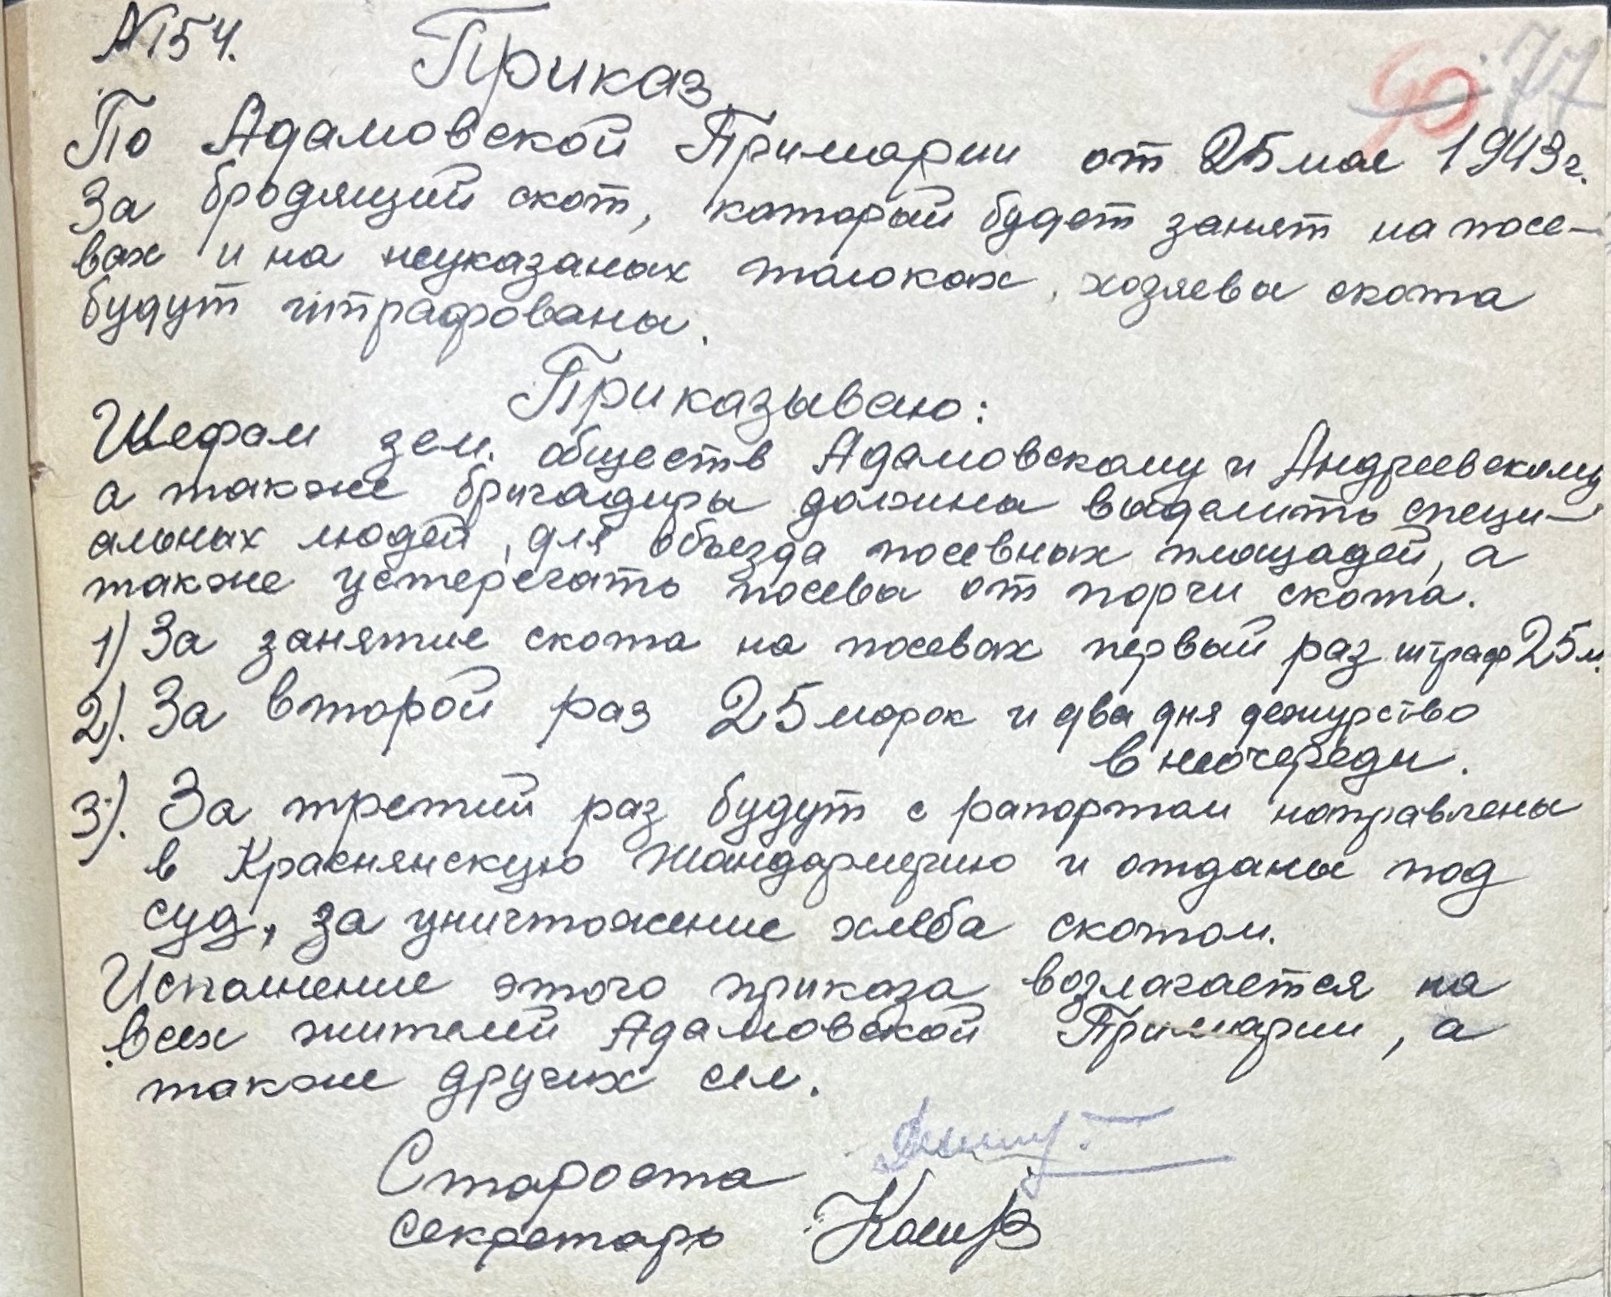 №154.
Приказ
90 77
По Адамовской Примарии от 25 мая 1943г.
За бродящий скот, который будет занят на посе-
вах и на неуказаных толоках, хозяева скота
будут штрафованы.
Приказываю:
Шефам зем. обществ Адамовскому и Андреевскому
а также бригадиры должны выделить специ-
альных людей, для объезда посевных площадей, а
также устерегать посевы от порчи скота.
1) За занятие скота на посевах первый раз штраф 25 м.
2). За второй раз 25 марок и два дня дежурство
в неочереди.
3). За третий раз будут с рапортом направлены
в Краснянскую Жандармерию и отданы под
суд, за уничтожение хлеба скотом.
Исполнение этого приказа возлагается на
всех жителей Адамовской Примарии, а
также других сел.
Староста
Секретарь